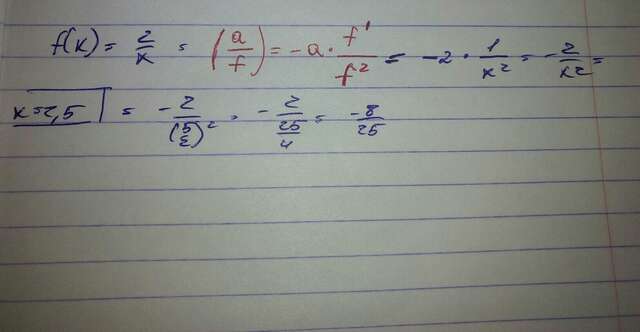 f(x) = 2/x = (a/f) = -a · f'/f² = -2 · 1/x² = -2/x² =
x=2,5 = -2/(5/2)² = -2/(25/4) = -8/25